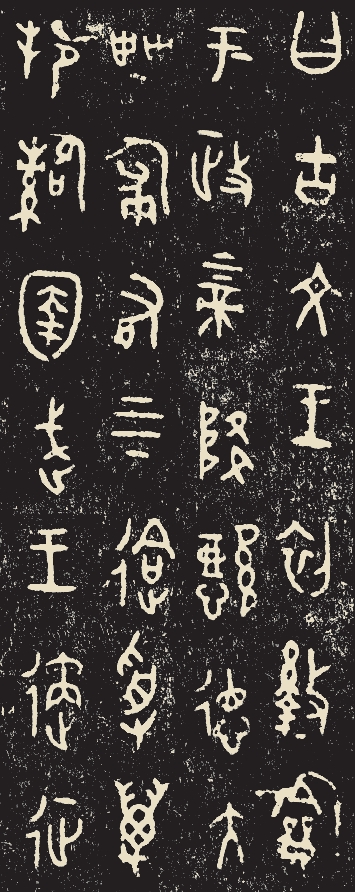 曰古文王初盭龢
于政上帝降懿德大
甹匍有上下迨受萬
邦𩁹圉武王遹征